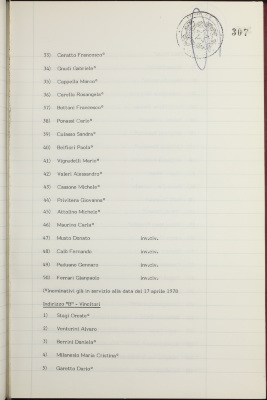 307
33) Ceratto Francesco*
34) Conti Gabriele*
35) Cappello Marco*
36) Carollo Rosangela*
37) Bettoni Francesco*
38) Ponassi Carlo*
39) Cubaiu Sandra*
40) Belfiori Paola*
41) Vignadelli Mario*
42) Valeri Alessandro*
43) Cassone Michele*
44) Polichera Giovanna*
45) Attolino Michele*
46) Maurino Carla*
47) Musto Donato inv.civ.
48) Calì Fernando inv.civ.
49) Padoano Gennaro inv.civ.
50) Ferrari Gianpaolo inv.civ.
(*)nominativi già in servizio alla data del 17 aprile 1978
Indirizzo "B" - Vincitori
1) Biagi Oreste*
2) Venturini Alvaro
3) Bernini Daniela*
4) Milanesio Maria Cristina*
5) Garetto Dario*